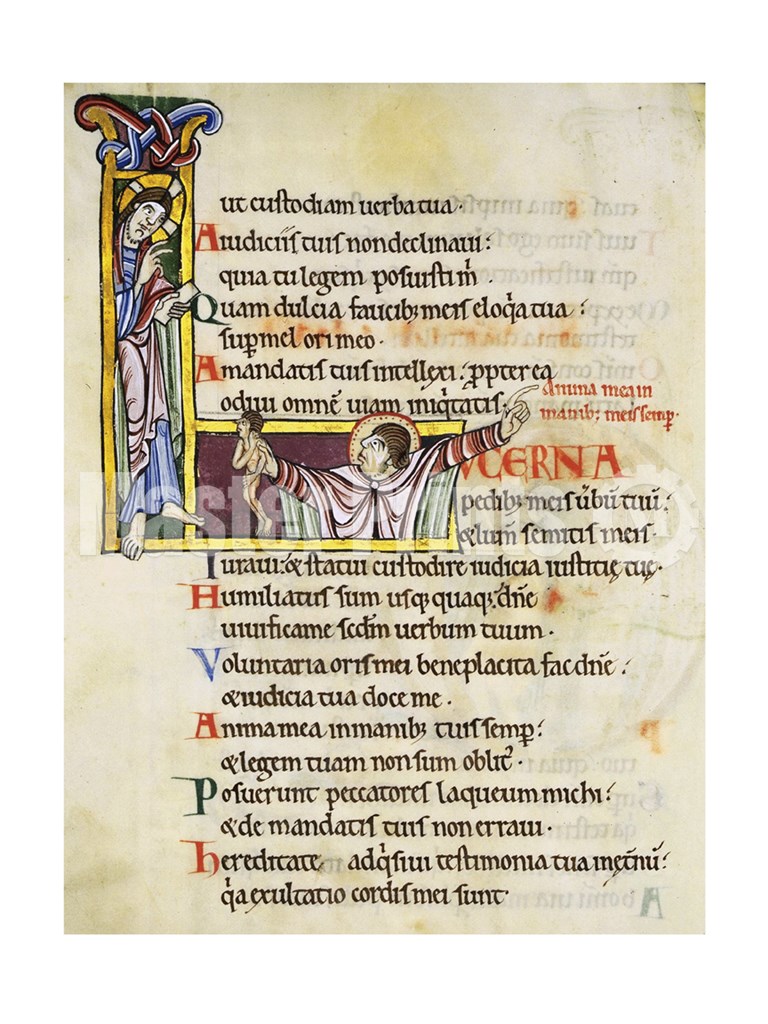 ut custodiam uerba tua·
A iudiciis tuis non declinaui:
quia tu legem posuisti m̄·
Quam dulcia faucib; meis eloq̄a tua:
sup̄ mel ori meo·
A mandatis tuis intellexi: p̄pterea
odiui omnē uiam iniq̄tatis·
Anima mea in
manib; meis semp̄·
LVCERNA
pedib; meis ūbū tuū:
& lum̄ semitis meis·
Iuraui: & statui custodire iudicia iustitię tuę·
Humiliatus sum usq; quaq; dn̄e
uiuifica me scdm̄ uerbum tuum·
Voluntaria oris mei beneplacita fac dn̄e:
& iudicia tua doce me·
Anima mea in manib; tuis semp̄:
& legem tuam non sum oblit᾿·
Posuerunt peccatores laqueum michi:
& de mandatis tuis non erraui·
hereditate adq̄siui testimonia tua inet̄nū:
q̄a exultatio cordis mei sunt·